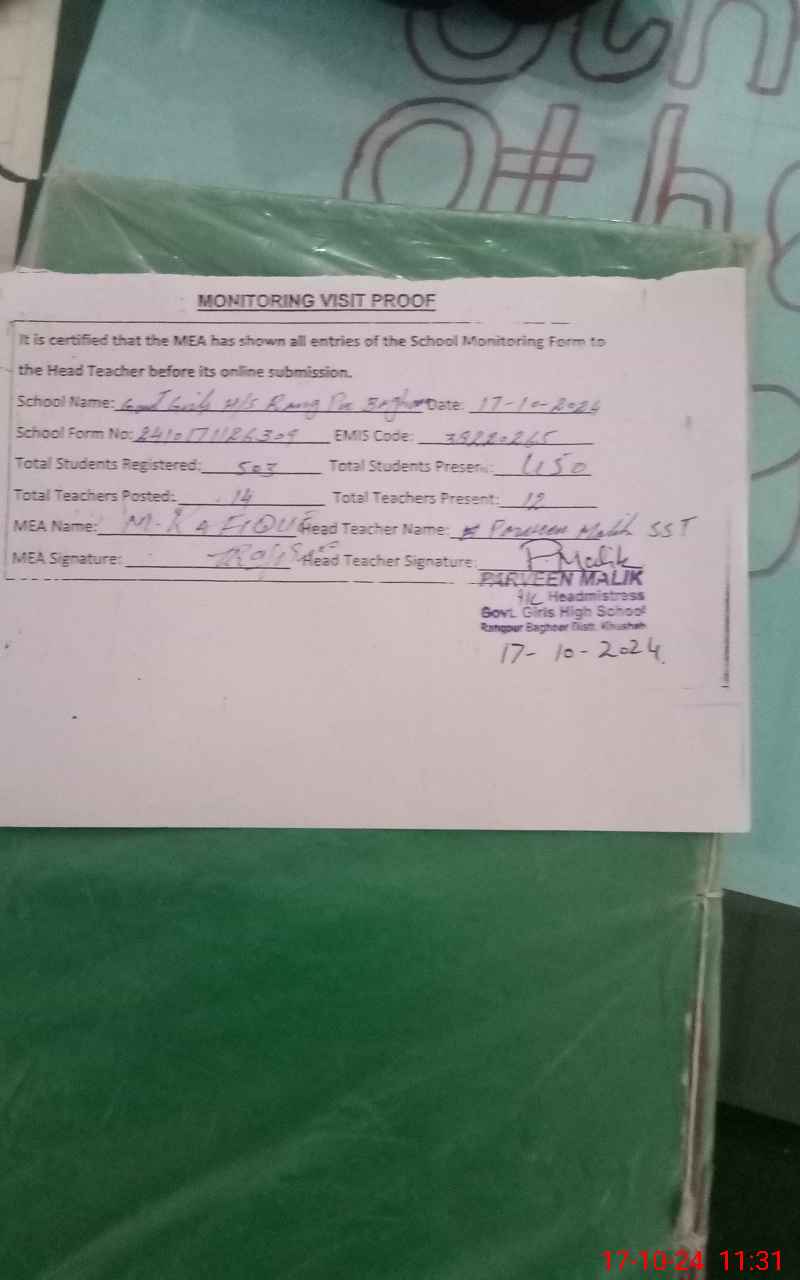 Oth
MONITORING VISIT PROOF
It is certified that the MEA has shown all entries of the School Monitoring Form to
the Head Teacher before its online submission.
School Name: Govt Girls H/S Rang Pur Baghoor Date: 17-10-2024
School Form No: EMIS Code:
Total Students Registered: 503 Total Students Present: 450
Total Teachers Posted: 14 Total Teachers Present: 12
MEA Name: M-RAFIQUE Head Teacher Name: Parveen Malik SST
MEA Signature: Head Teacher Signature: P.Malik
PARVEEN MALIK
I/C Headmistress
Govt. Girls High School
Rangpur Baghoor Distt. Khushab
17-10-2024
17-10-24 11:31